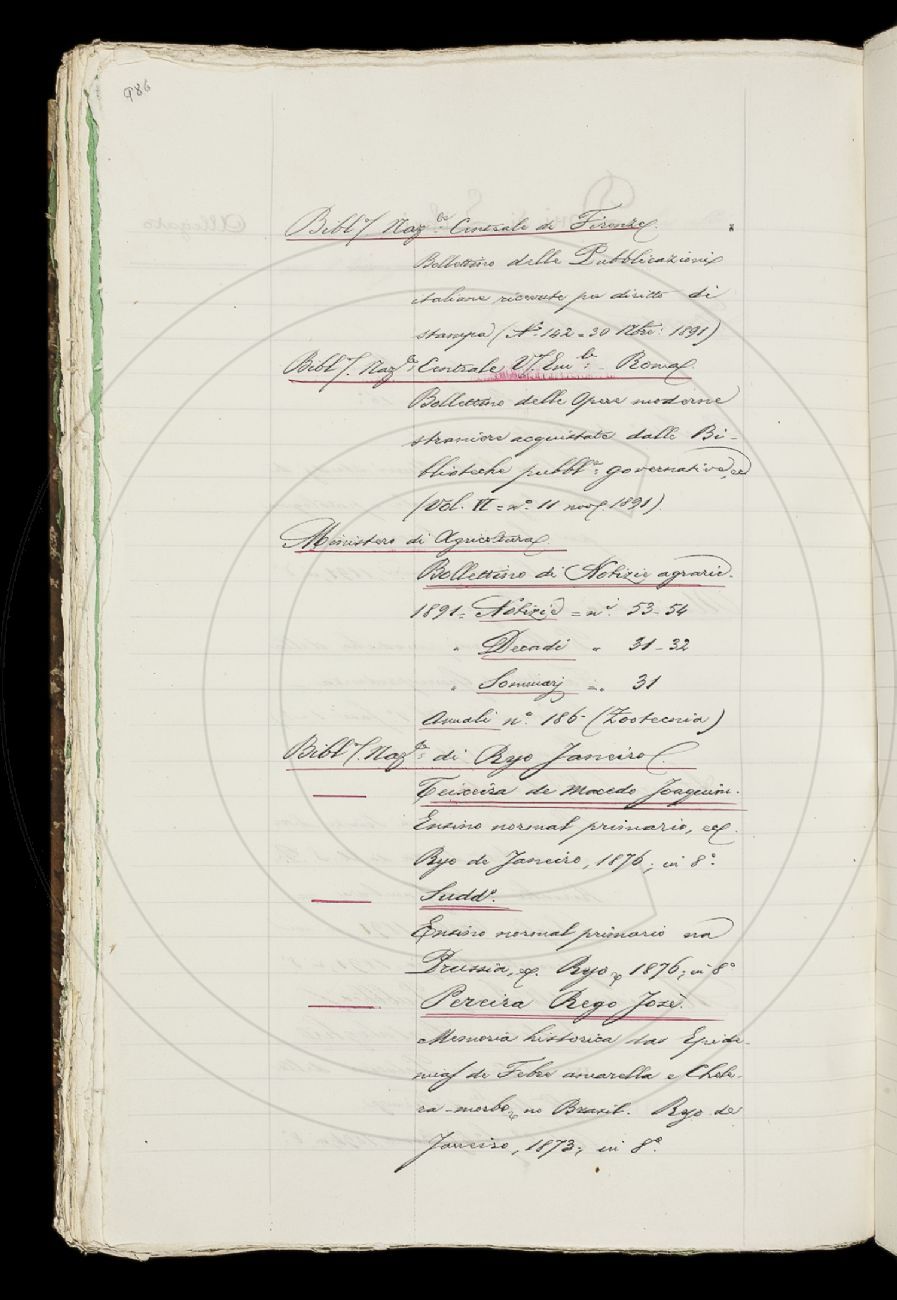 986
Bibl.ª Naz.le Centrale di Firenze.
Bollettino delle Pubblicazioni
italiane ricevute per diritto di
stampa (N.º 142 = 30 9bre: 1891)
Bibl.ª Naz.le Centrale V. Em.le Roma
Bollettino delle Opere moderne
straniere acquistate dalle Bi-
blioteche pubbl.e governative,
(Vol. VI = nº 11 1891)
Ministero di Agricoltura
Bollettino di Notizie agrarie.
1891 = Notizie = n.i 53-54
" Decadi " 31-32
" Sommarj = " 31
Annali nº 186 (Zootecnia)
Bibl.ª Naz.le di Ryo Janeiro
Teixeira de Macedo Joaquim.
Ensino normal primario,
Ryo de Janeiro, 1876; in 8º
Sudd.º
Ensino normal primario na
Prussia, Ryo 1876; in 8º
Pereira Rego José.
Memoria historica das Epide-
mias de Febre amarella e Chole-
ra-morbo, no Brazil. Ryo de
Janeiro, 1873; in 8º.